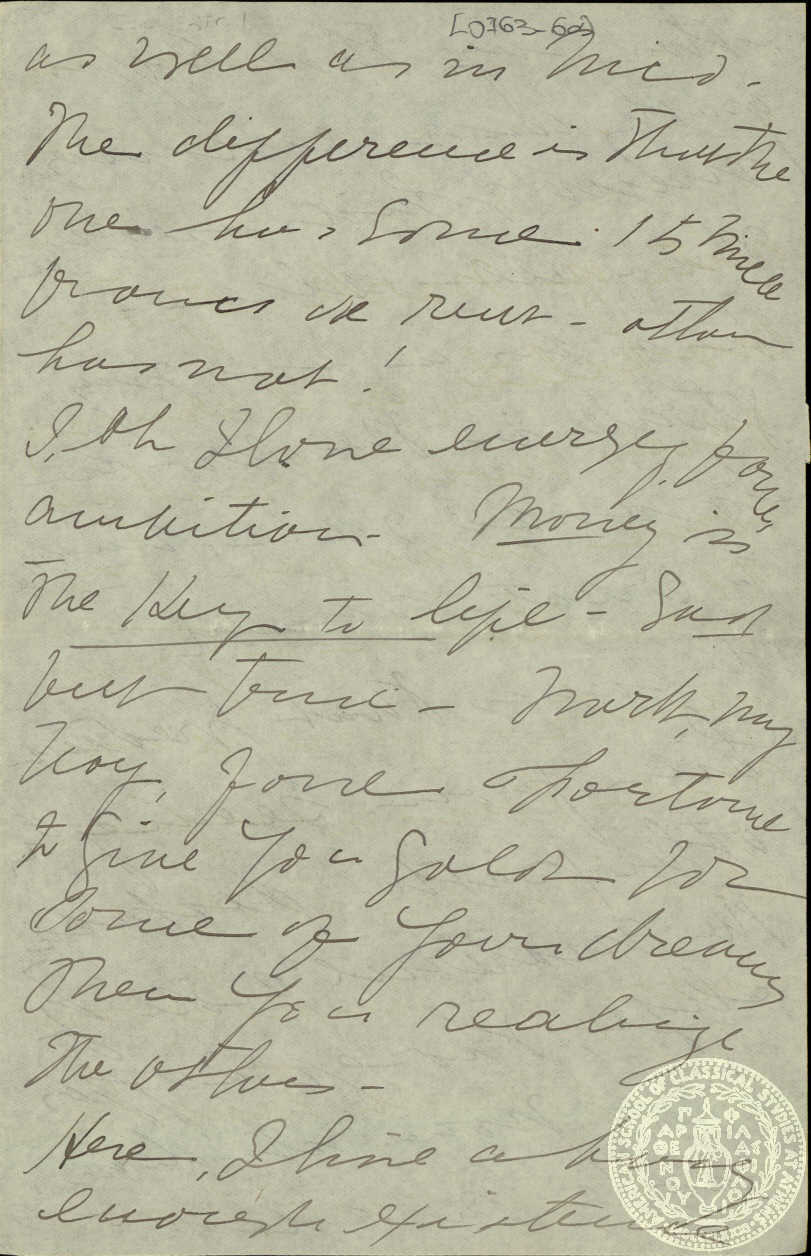 [0763-60]
as well as in mind.
The difference is that the
one has some 15 mille
francs de rent - other
has not!
I, oh I love energy, power
ambition - Money is
the key to life - Sad
but true - Mark, my
boy, fortune
to give you gold for
some of your dreams
then you realize
the others -
Here, I live a busy
enough existence
AMERICAN SCHOOL OF CLASSICAL STUDIES AT ATHENS
ΠΑΡΘΕΝΟΥ ΦΙΛΑΣ